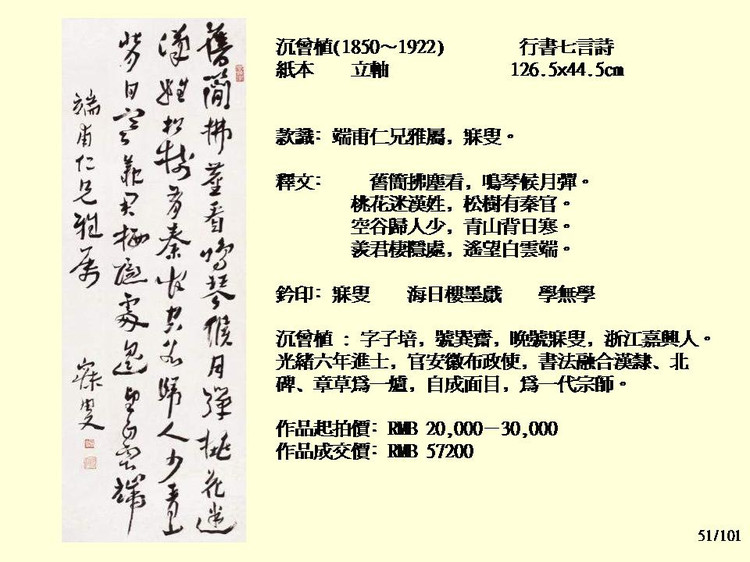 舊簡拂塵看鳴琴候月彈桃花迷
漢姓松樹有秦官空谷歸人少青山
背日寒羨君棲隱處遙望白雲端
端甫仁兄雅屬
寐叟
沉曾植(1850～1922) 行書七言詩
紙本 立軸 126.5x44.5cm
款識: 端甫仁兄雅屬，寐叟。
釋文: 舊簡拂塵看，鳴琴候月彈。
桃花迷漢姓，松樹有秦官。
空谷歸人少，青山背日寒。
羨君棲隱處，遙望白雲端。
鈐印: 寐叟 海日樓墨戲 學無學
沉曾植 : 字子培，號巽齋，晚號寐叟，浙江嘉興人。
光緒六年進士，官安徽布政使，書法融合漢隸、北
碑、章草爲一爐，自成面目，爲一代宗師。
作品起拍價: RMB 20,000－30,000
作品成交價: RMB 57200
51/101